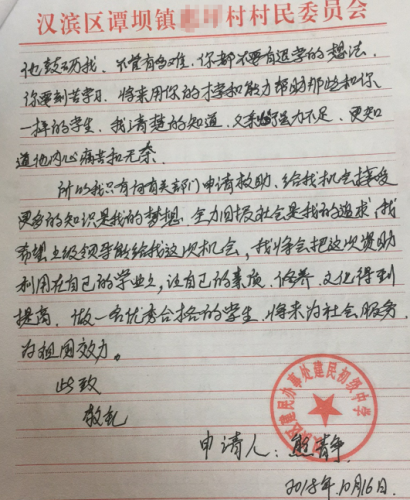 汉滨区谭坝镇村村民委员会
他鼓励我,不管有多难,你都不要有退学的想法,
你要刻苦学习,将来用你的才学和能力帮助那些和你
一样的学生,我清楚的知道,父亲的能力不足,更知
道他内心痛苦和无奈。
所以我只有向有关部门申请救助,给我机会接受
更多的知识是我的梦想,全力回报社会是我的追求,我
希望上级领导能给我这次机会,我将会把这次资助
利用在自己的学业上,让自己的素质、修养、文化得到
提高,做一名优秀合格的学生,将来为社会服务,
为祖国效力。
此致
敬礼
建民办事处建民初级中学
申请人:熊静
2018年10月16日